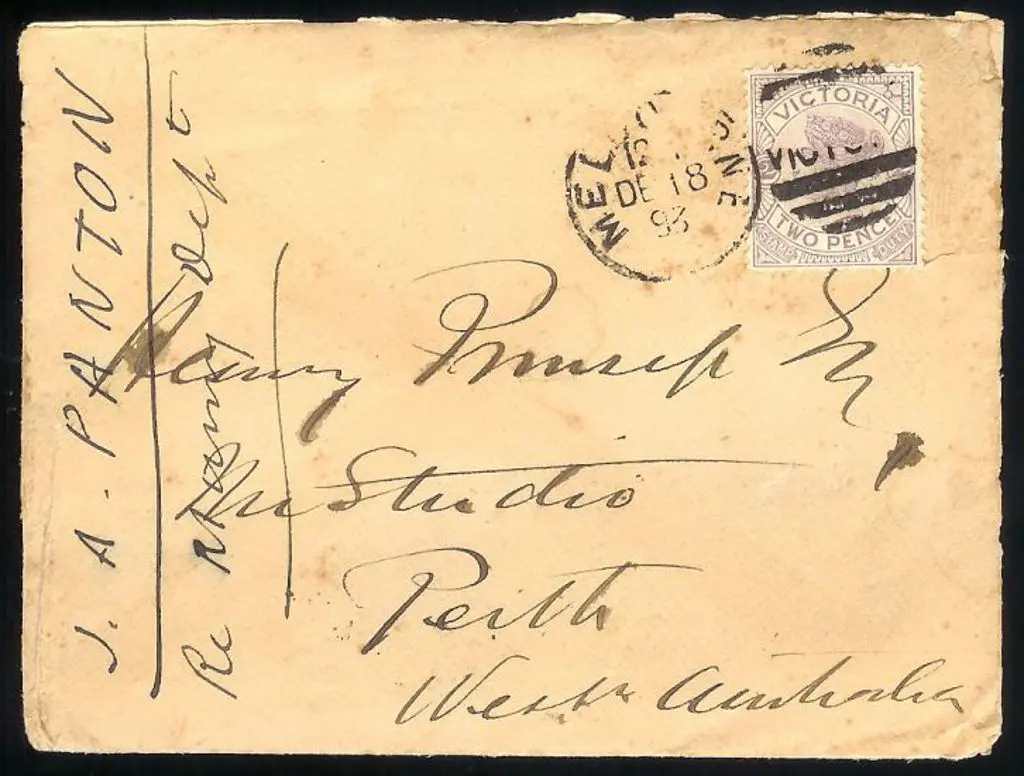 J. A. PANTON
Re Mining Dept
MEL
12
DE 18
93
VICTORIA
VICTO
TWO PENCE
STAMP DUTY
Henry Prinsep Esq
The Studio
Perth
West Australia